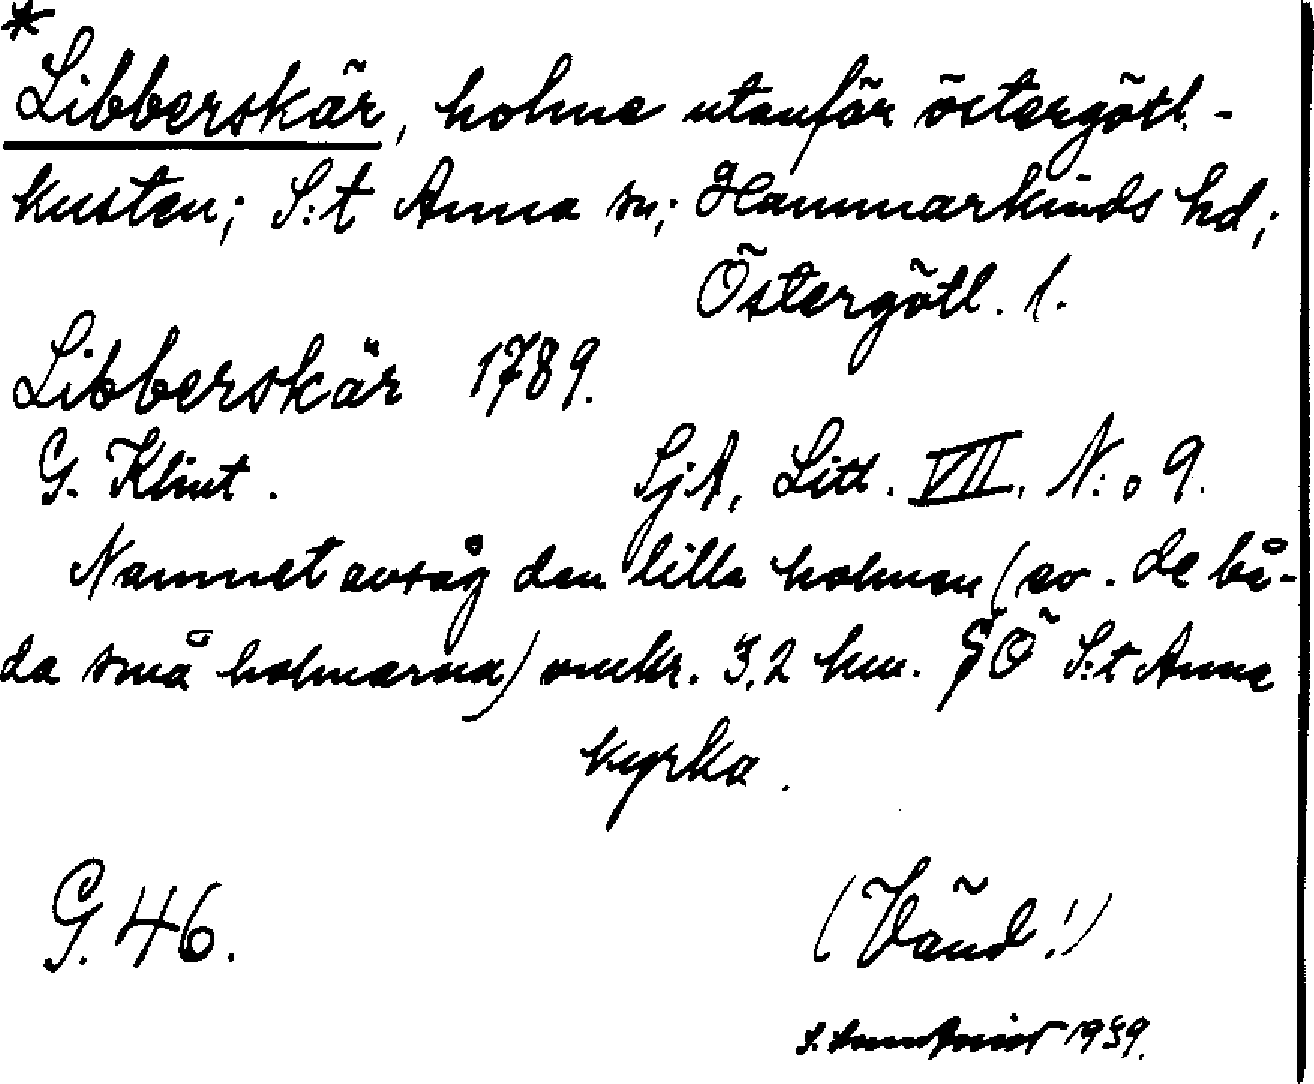 *
Libberskär, holme utanför östergötl.-
kusten; S:t Anna sn; Hammarkinds hd;
Östergötl. l.
Libberskär 1789.
G. Klint. SjA, Litt. VII. N:o 9.
Namnet avsåg den lilla holmen (av de bå-
da små holmarna) omkr. 3,2 km. SÖ S:t Anna
kyrka.
G. 46. (Vänd!)
1939.